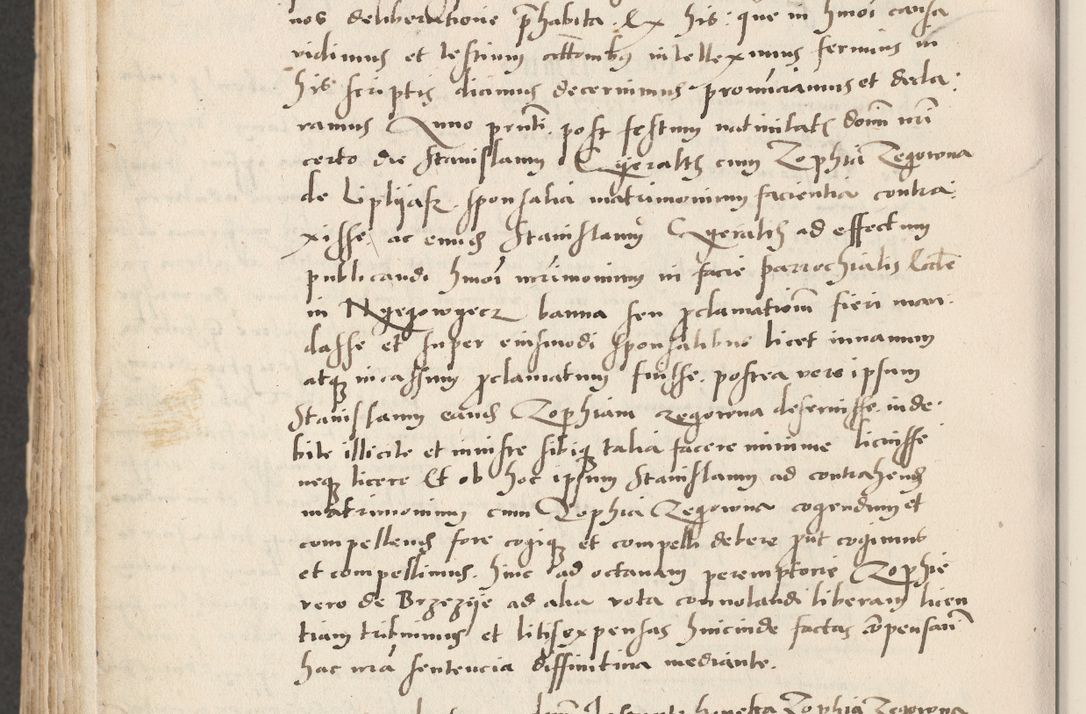 nos deliberatione p̄habita. Ex his que in hmōi causa
vidimus et testium attestationibus intelleximus ferimus in
his scriptis dicimus decernimus pronūciamus et decla-
ramus Anno pn̄ti post festum nativitatis domī nr̄i
certo die Stanislaum Cgeralth cum Zophia Zegowna
de Liplijasz sponsalia matrimonium facientia contra-
xisse, ac eundē Stanislaum Cgeralth ad effectum
publicandi hmōi mr̄imonium in facie parrochialis Eccl̄e
in Nyegowgecz banna seu p̄clamationē fieri man-
dasse et super eiusmodi sponsalibus licet innanum
atq̄ incassum p̄clamatum fuisse. postea vero ipsum
Stanislaum eandē Zophiam Zegowna deseruisse inde-
bite illicite et iniuste sibiq̄ talia facere minime licuisse
neq̄ licere Et ob hoc ipsum Stanislaum ad contrahendū
matrimonium cum Zophia Zegowna cogendum et
compellendū fore cogiq̄ et compelli debere p̄ut cogimus
et compellimus. hinc ad octavam peremptorie Zophie
vero de Brzezije ad alia vota convolandi liberam licen
tiam tribuimus et litis expensas hincinde factas cōpensam̄
hac nr̄a sentencia diffinitiva mediante.
honesta Zophia Zegowna